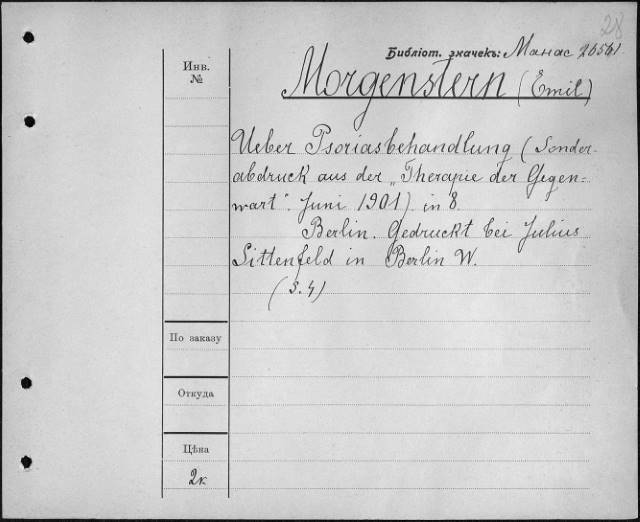 28
Библіот. значекъ: Манас 26561.
Инв.
№
Morgenstern (Emil)
Ueber Psoriasbehandlung (Sonder-
abdruck aus der „Therapie der Gegen=
wart". Juni 1901) in 8.
Berlin. Gedruckt bei Julius
Sittenfeld in Berlin W.
(S. 4)
По заказу
Откуда
Цѣна
2к